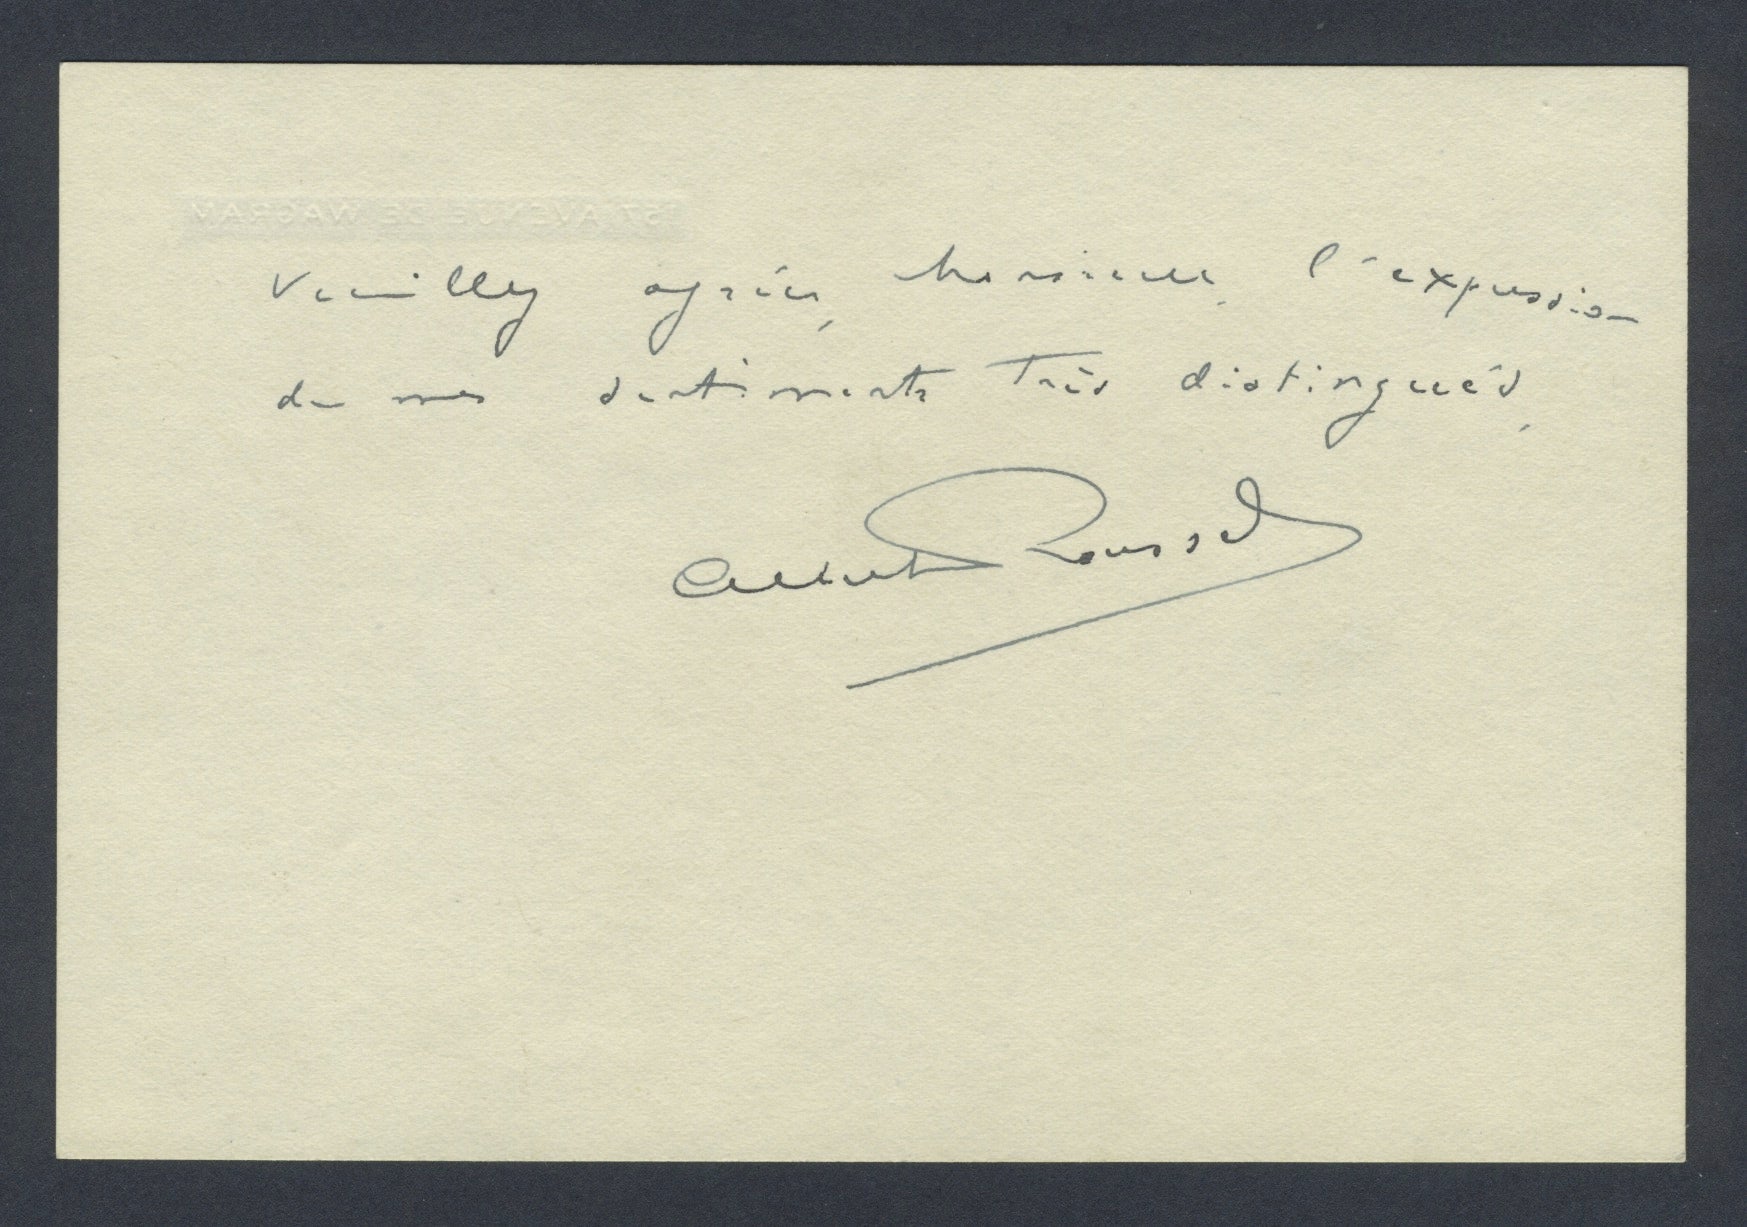 157, AVENUE DE WAGRAM
Veuillez agréer, Monsieur, l'expression
de mes sentiments très distingués,
Albert Roussel